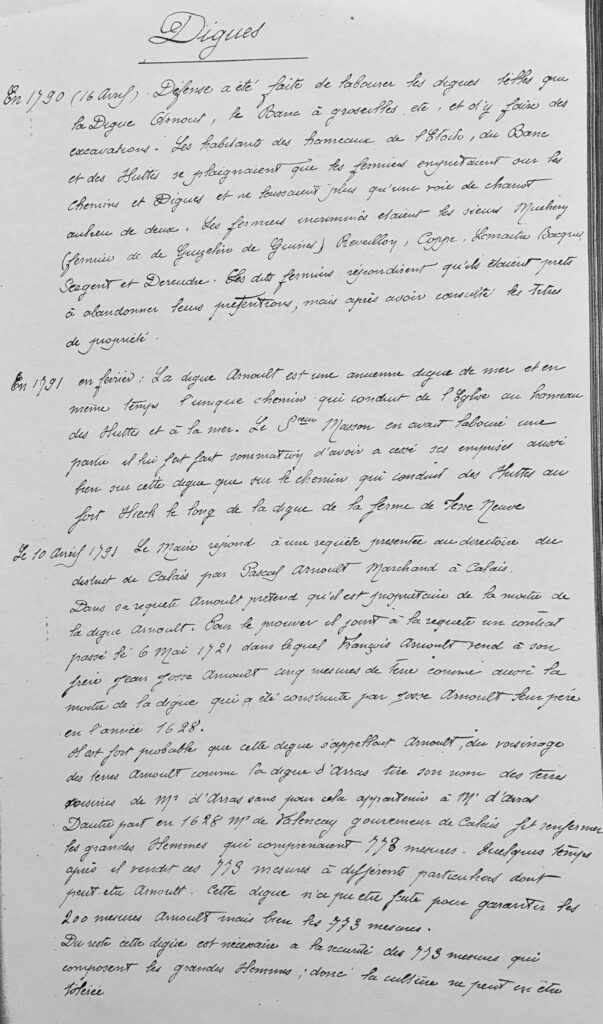 Digues
En 1790 (16 Avril). Défense a été faite de labourer les digues telles que
la Digue Arnout, le Banc à groseilles etc, et d'y faire des
excavations. Les habitants des hameaux de l'Etoile, du Banc
et des Huttes se plaignaient que les fermiers empiétaient sur les
chemins et Digues et ne laissaient plus qu'une voie de chariot
au lieu de deux. Les fermiers incriminés étaient les sieurs
(fermier de de Guizelin de Guines) Reveillon, Coppe, Lemaitre Bacquet
Sergent et Dereudre. Les dits fermiers répondirent qu'ils étaient prêts
à abandonner leurs prétentions, mais après avoir consulté les titres
de propriété.
En 1791 en février : La digue Arnoult est une ancienne digue de mer et en
même temps l'unique chemin qui conduit de l'Eglise au hameau
des Huttes et à la mer. Le Sieur Masson en avait labouré une
partie il lui fut fait sommation d'avoir a cessé ses emprises aussi
bien sur cette digue que sur le chemin qui conduit des Huttes au
fort Hieck le long de la digue de la ferme de Terre Neuve
Le 10 Avril 1791 Le Maire répond à une requête présentée au directoire du
district de Calais par Pascal Arnoult Marchand à Calais.
Dans sa requête Arnoult prétend qu'il est propriétaire de la moitié de
la digue Arnoult. Pour le prouver il joint à la requête un contrat
passé le 6 Mai 1721 dans lequel François Arnoult vend à son
frère Jean Josse Arnoult cinq mesures de terre comme aussi la
moitié de la digue qui a été construite par Josse Arnoult leur père
en l'année 1628.
Il est fort probable que cette digue s'appellait Arnoult, du voisinage
des terres Arnoult comme la digue d'Arras tire son nom des terres
voisines de Mr d'Arras sans pour cela appartenir à Mr d'Arras
D'autre part en 1628 Mr de Valencay gouverneur de Calais fit renfermer
les grandes Hemmes qui comprenaient 773 mesures. Quelques temps
après il vendit ces 773 mesures à différents particuliers dont
peut-être Arnoult. Cette digue n'a pu être faite pour garantir les
200 mesures Arnoult mais bien les 773 mesures.
Du reste cette digue est nécessaire a la sécurité des 773 mesures qui
composent les grandes Hemmes ; donc la culture ne peut en être
tolérée